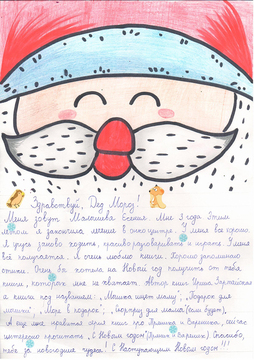 Здравствуй, Дед Мороз!
Меня зовут Малашева Есения. Мне 9 года. Этим
летом я закончила лечение в онкоцентре. У меня все хорошо.
Я учусь заново ходить, разговаривать и играть. У меня
всё получается. Я очень люблю книги. Хорошо запоминаю
стихи. Очень бы хотела на Новый год получить от тебя
книги, которых мне не хватает. Автор
а книги под названием: "Машка ищет маму", "Подарок для
мамы", "Мёд в подарок", для мамы (если будет),
А ещё мне нравится про Пряника и Вареника, сейчас
интересно прочитать "С Новым годом" (Пряник и Вареник). Спасибо,
тебе за новогодние чудеса! С Наступающим Новым годом!